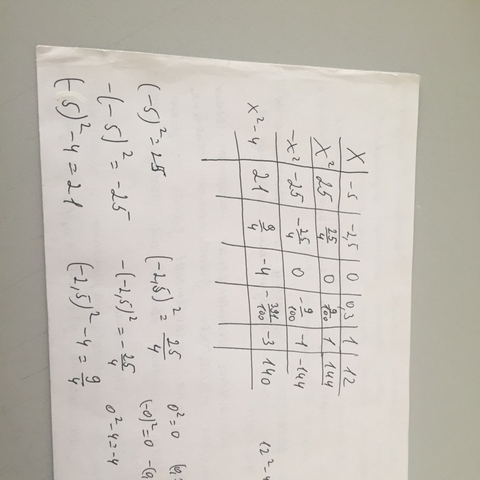 x | -5 | -2,5 | 0 | 0,3 | 1 | 12
x² | 25 | 25/4 | 0 | 9/100 | 1 | 144
-x² | -25 | -25/4 | 0 | -9/100 | -1 | -144
x²-4 | 21 | 9/4 | -4 | -391/100 | -3 | 140
(-5)²=25
-(-5)²=-25
(-5)²-4=21
(-2,5)²=25/4
-(-2,5)²=-25/4
(-2,5)²-4=9/4
0²=0
(-0)²=0
0²-4=-4
12²-4